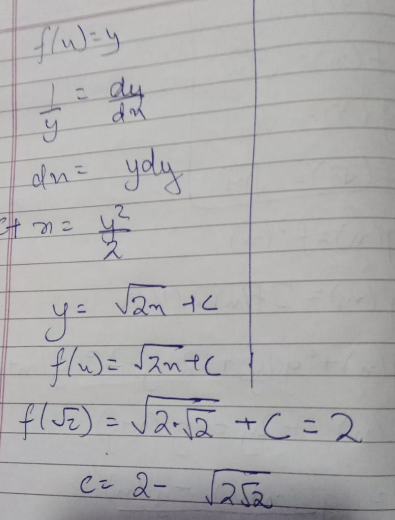 f(x)=y
1/y = dy/dx
dx = ydy
c+ x = y²/2
y = √2x +c
f(x) = √2x+c
f(√2) = √2·√2 + C = 2
c = 2 - √2√2